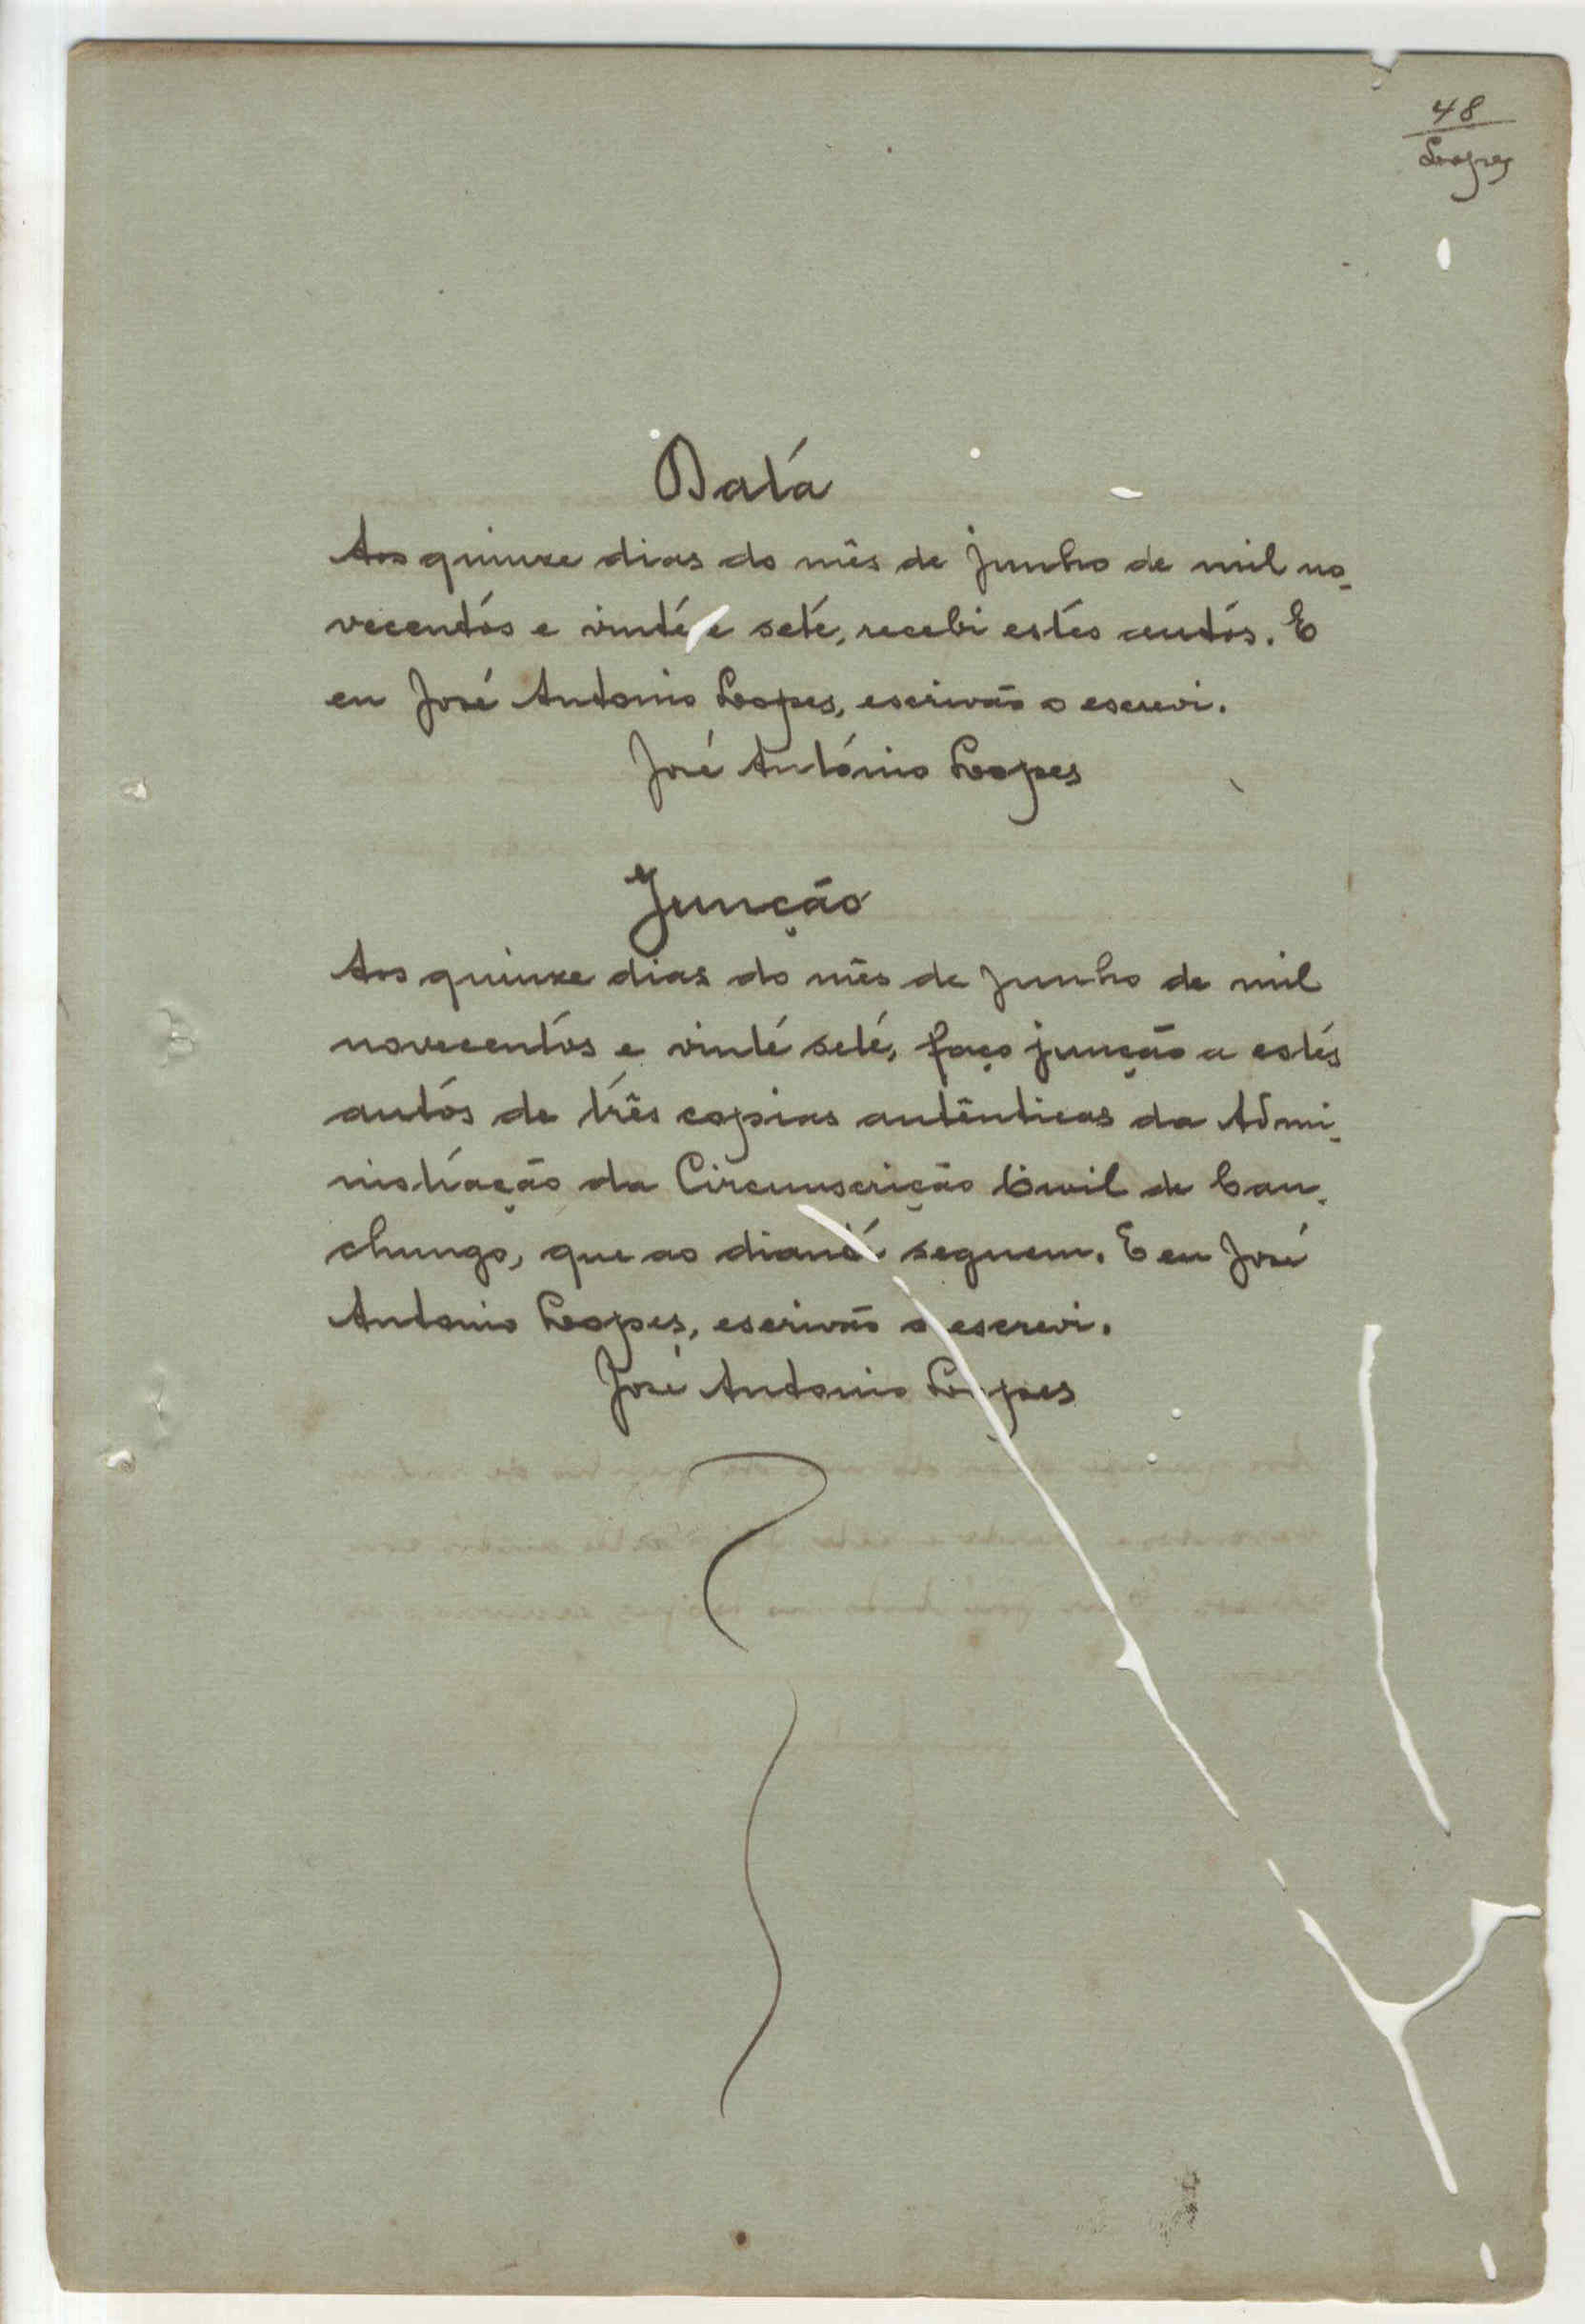 48
Lopes
Data
Aos quinze dias do mês de junho de mil no-
vecentos e vinte e sete, recebi estes autos. E
eu José Antonio Lopes, escrivão o escrevi.
José António Lopes
Junção
Aos quinze dias do mês de junho de mil
novecentos e vinte sete, faço junção a estes
autos de três copias autênticas da Admi-
nistração da Circunscrição Civil de Can-
chungo, que ao diante seguem. E eu José
Antonio Lopes, escrivão o escrevi.
José Antonio Lopes